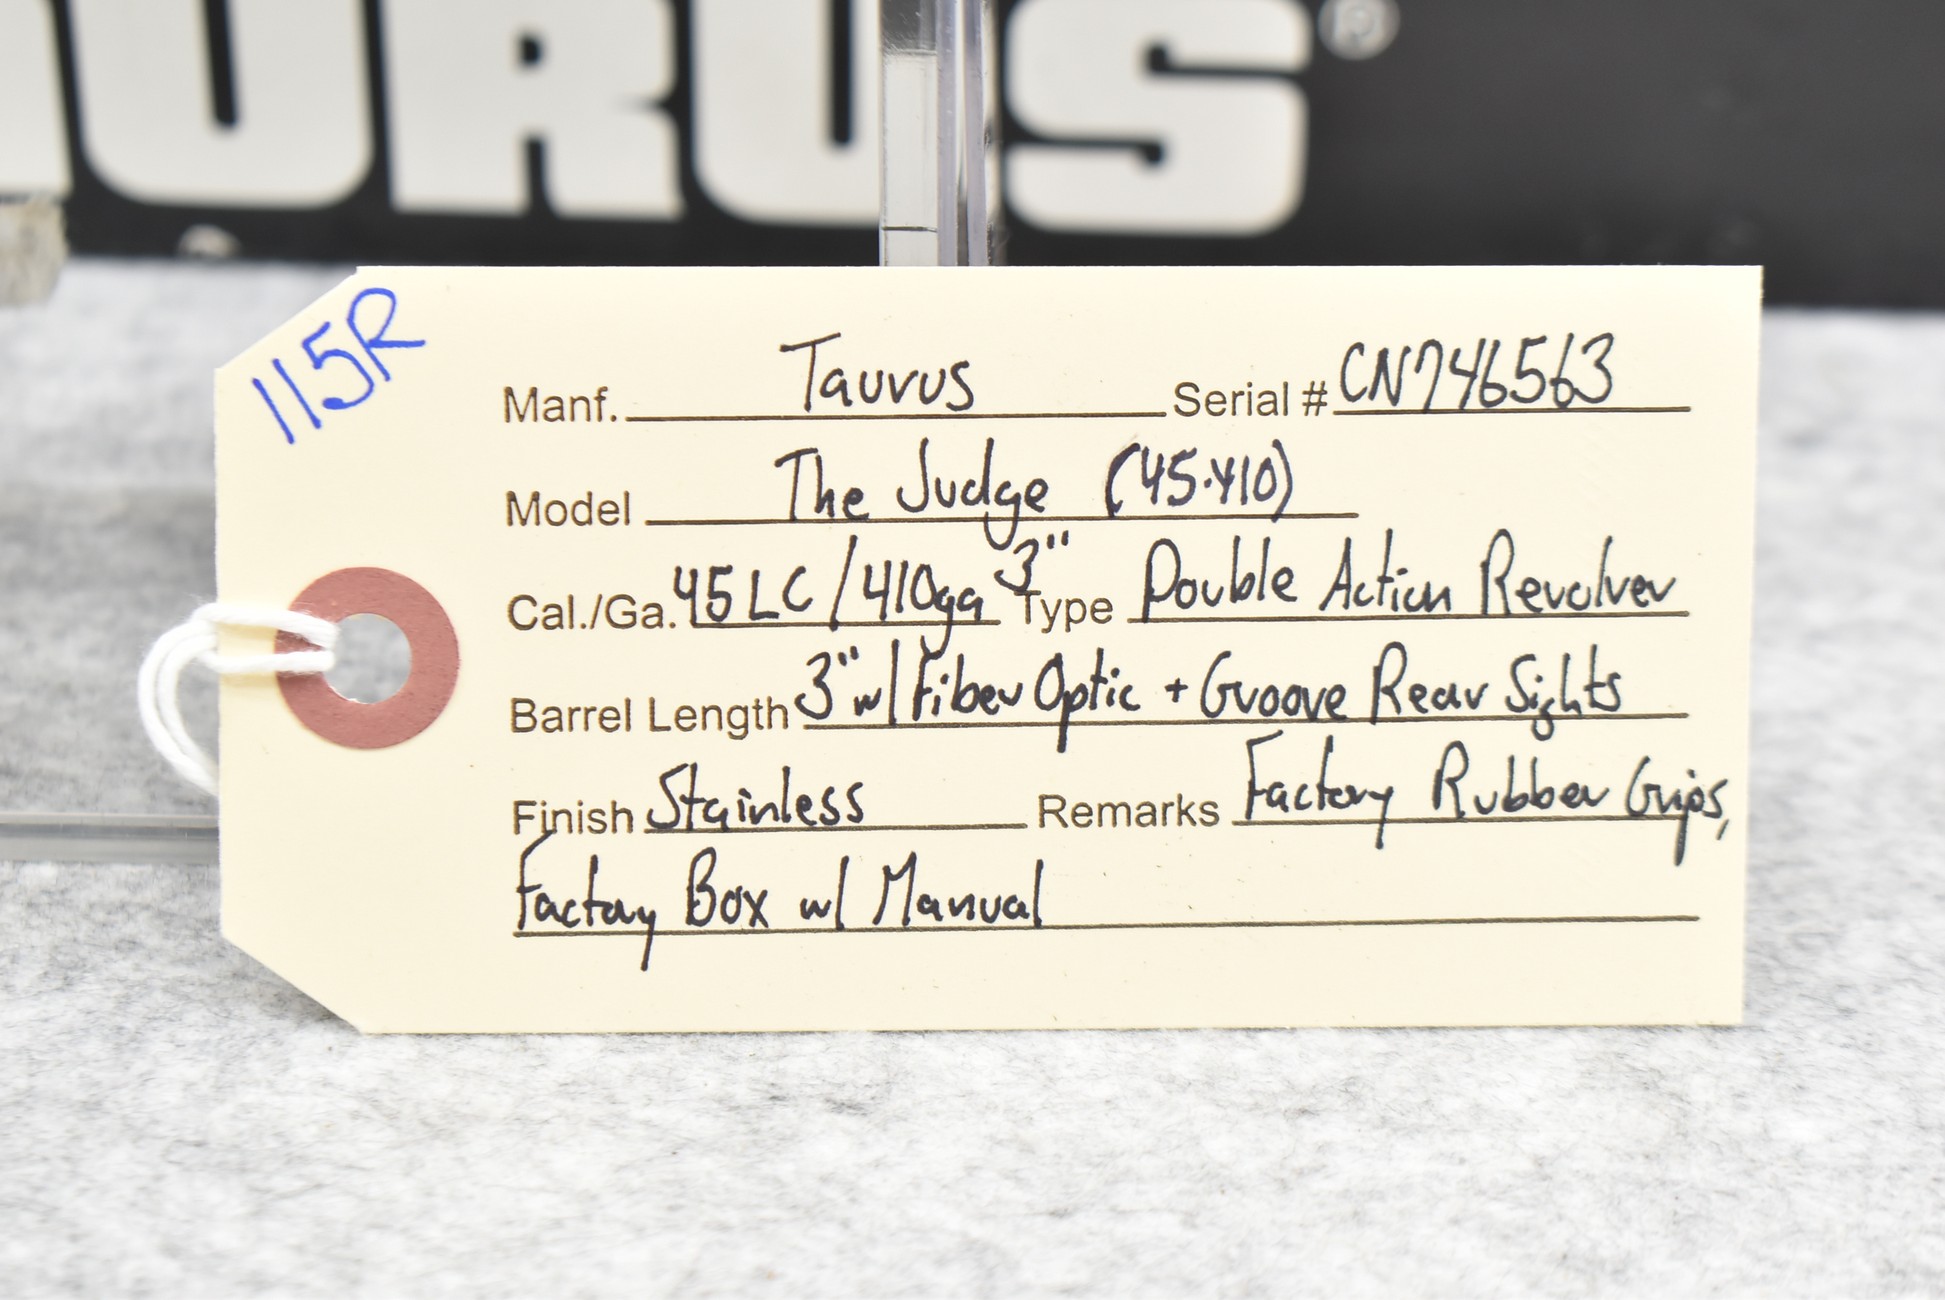 AURUS®
115R
Manf. Taurus Serial # CN746563
Model The Judge (45·410)
Cal./Ga. 45LC/410ga 3" Type Double Action Revolver
Barrel Length 3" w/ Fiber Optic + Groove Rear Sights
Finish Stainless Remarks Factory Rubber Grips,
Factory Box w/ Manual